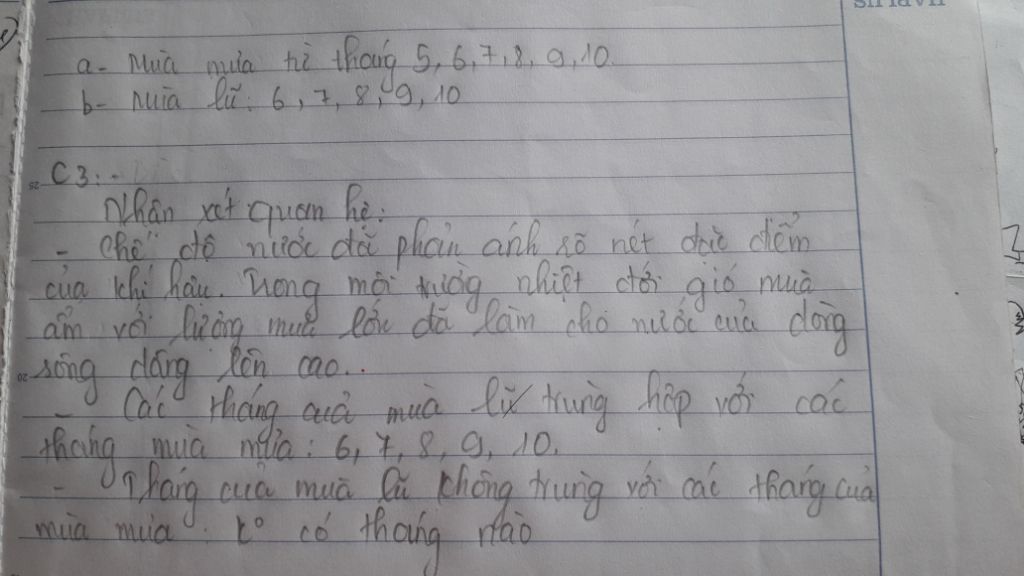 a- Mùa mưa từ tháng 5, 6, 7, 8, 9, 10.
b- Mùa lũ: 6, 7, 8, 9, 10
C3:-
Nhận xét quan hệ:
- Chế độ nước đã phản ánh rõ nét đặc điểm
của khí hậu. Trong môi trường nhiệt đới gió mùa
ẩm với lượng mưa lớn đã làm cho nước của dòng
sông dâng lên cao..
- Các tháng của mùa lũ trùng hợp với các
tháng mùa mưa: 6, 7, 8, 9, 10.
- Tháng của mùa lũ không trùng với các tháng của
mùa mưa: k° có tháng nào